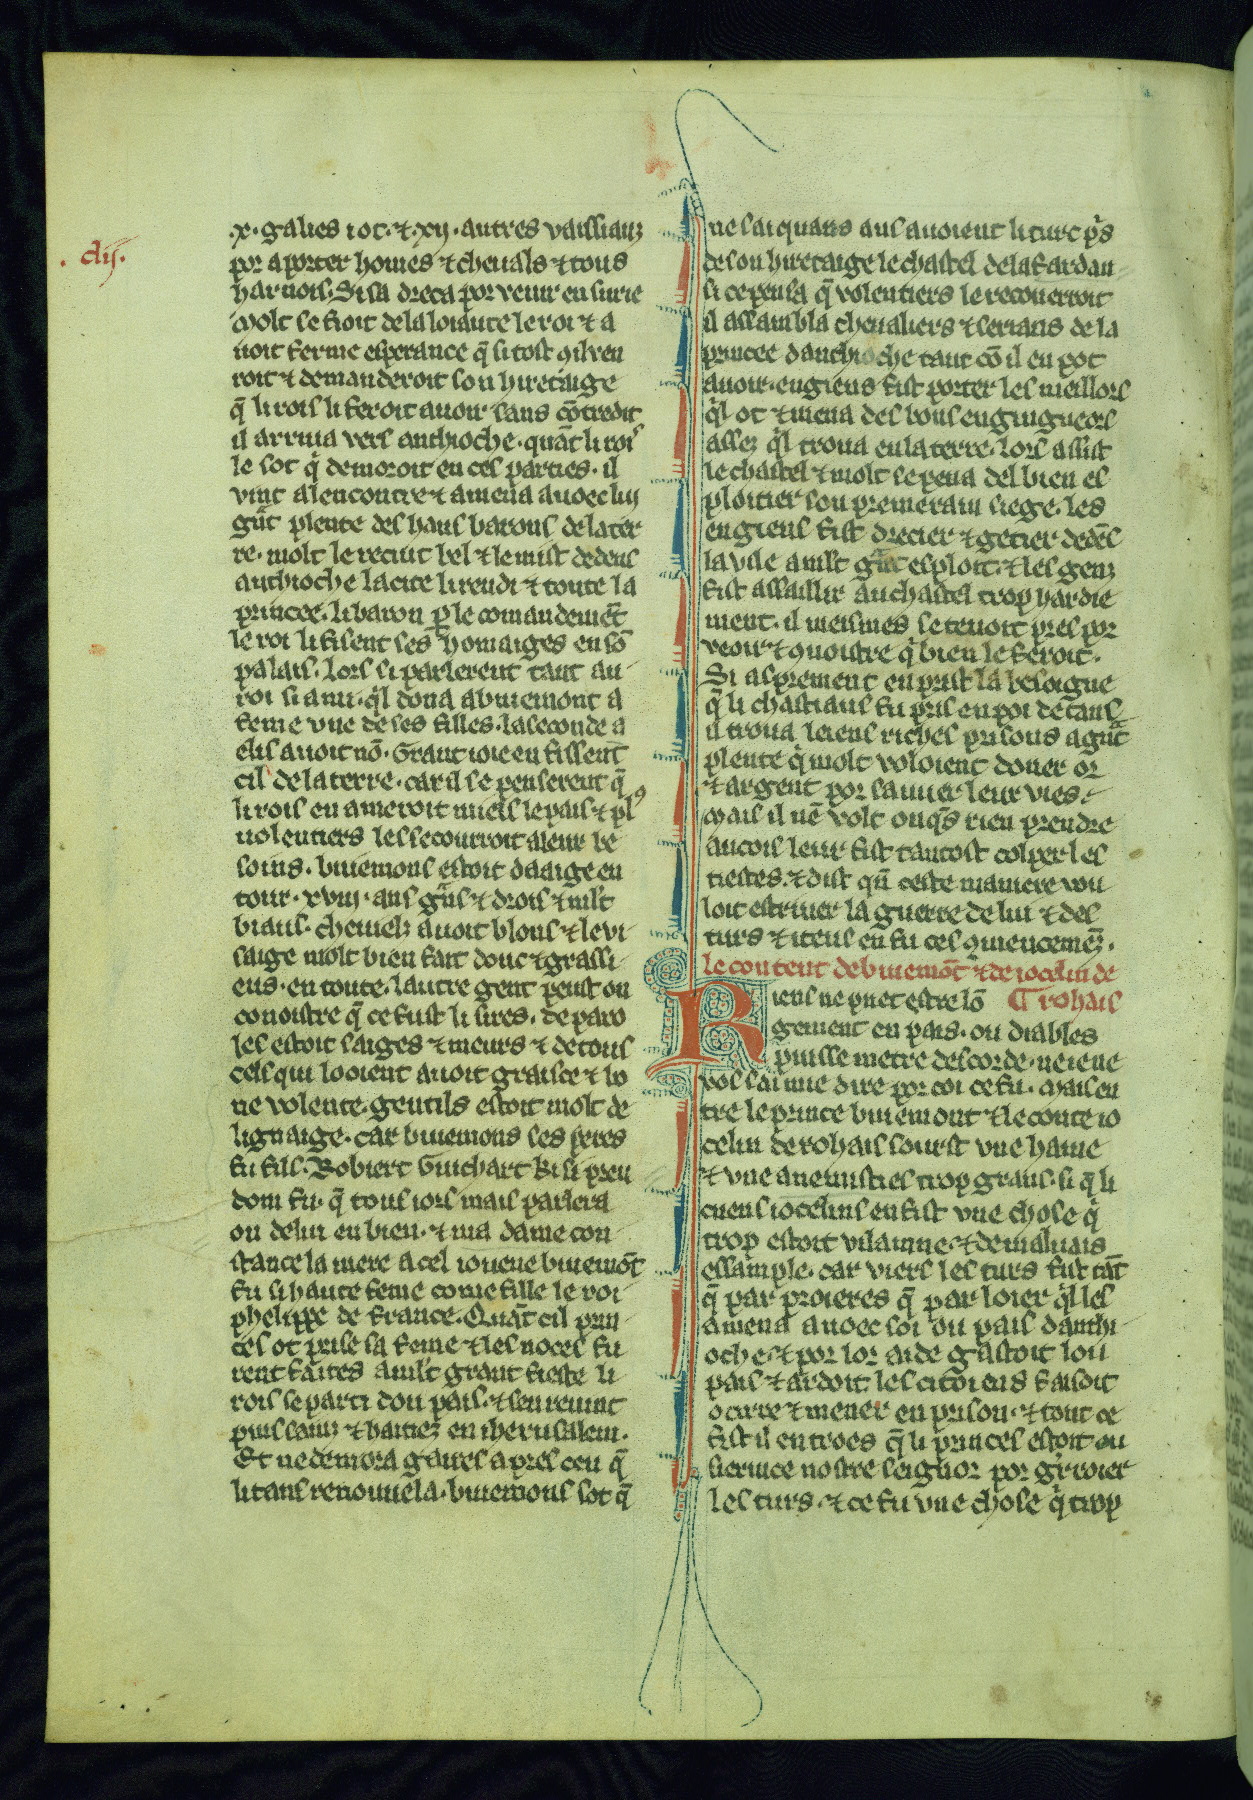 .cиj.
.x. galies i ot. ⁊ .xij. autres vaissiauz
por aporter homes ⁊ cheuals ⁊ tous
harnois. Si sa dreca por venir en surie
Molt se fioit de la loiaute le roi ⁊ a
uoit ferme esperance q̄ si tost ꝯ il ven
roit ⁊ demanderoit son hiretaige
q̄ li rois li feroit auoir sans cōtredit
il arriua vers anthioche. quāt li rois
le sot q̓ demoroit en ces parties. il
vint a lencontre ⁊ amena auoec luj
gᷓt plente des haus barons de la ter
re. molt le reciut bel ⁊ le mist dedens
anthioche la cite li rendi ⁊ toute la
princee. li baron ꝑ le comandemēt
le roi li fisent ses homaiges en sō
palais. Lors si parlerent tant au
roi si ami. q̓l dona abuiemont a
feme vne de ses filles. la seconde a
elis auoit nō. Grant ioie en fissent
cil de la terre. car il se penserent q̄
li rois en ameroit mieus le pais ⁊ plꝰ
uolentiers les secourroit a leur be
soins. buiemons estoit daaige en
tour .xviij. ans gᷓns ⁊ drois ⁊ mlt
biaus. cheuels auoit blons ⁊ le vi
saige molt bien fait donc ⁊ grassi
ens. en toute lautre gent peust on
conoistre q̄ ce fust li sires. de paro
les estoit saiges ⁊ meurs ⁊ de tous
cels qui looient auoit graisce ⁊ bo
ne volente. gentils estoit molt de
lignaige. car buiemons ses peres
fu fils Robiert Guichart ki si preu
dom fu. q̄ tous iors mais parlera
on de lui en bien. ⁊ ma dame con
stance la mere a cel ioueue buiemōt
fu si haute feme come fille le roi
phelippe de france. Quāt cil prin
ces ot prise sa feme ⁊ les noces fu
rent faites a mlt grant fieste li
rois se parti dou pais. ⁊ sen reuint
puis sains ⁊ haitiez en iherusalem.
Et ne demora gaires apres ceu q̄
li tans renouuela. buiemons sot q̄
ne sai quans ans auoient li turc pͥs
de son hiretaige le chastel de la fardan
si ce pensa q̄ volentiers le recouerroit
il assambla cheualiers ⁊ serians de la
princee danthioche tant cō il en pot
auoir. engiens fist porter les meillors
q̓l ot ⁊ mena des bons engingneors
assez q̓l troua en la terre. lors assist
le chastel ⁊ molt se pena del bien es
ploitier son premerain siege. les
engiens fist drecier ⁊ getier dedēs
la vile a mlt gᷓt esploit. ⁊ les genz
fist assaillir au chastel trop hardie
ment. il meismes se tenoit pres por
veoir ⁊ ꝯnoistre q̓ bien le feroit.
Si asprement en prist la besoigne
q̄ li chastiaus fu pris en poi de tans
il troua leiens riches prisons a gᷓnt
plente q̓ molt voloient doner or
⁊ argent por sauuer leur vies.
Mais il nē volt onqͥs rien prendre
ancois leur fist tantost colper les
tiestes. ⁊ dist qn̄ ceste maniere vou
loit estriuer la guerre de lui ⁊ des
turs ⁊ iteus en fu ces ꝯmencemez.
le content de buiemōt ⁊ de iocelin de
Riens ne puet estre lō rohais
gement en pais. ou diables
puisse metre descorde. ne iene
vos sai mie dire por coi ce fu. Mais en
tre le prince buiemont ⁊ le conte io
celin de rohais sourst vne haine
⁊ vne anemisties trop grans. si q̄ li
cuens iocelins en fist vne chose q̓
trop estoit vilainne. ⁊ de maluais
essample. car viers les turs fist tāt
q̄ par proieres q̄ par loier q̓l les
amena auoec soi ou pais danthi
oche. ⁊ por lor aide gastoit lou
pais ⁊ ardoit. les citoiens faisoit
ocirre ⁊ mener en prison. ⁊ tout ce
fist il entroes q̄ li princes estoit ou
sieruice nostre seignor por gͥroier
les turs. ⁊ ce fu vne chose q̓ trop